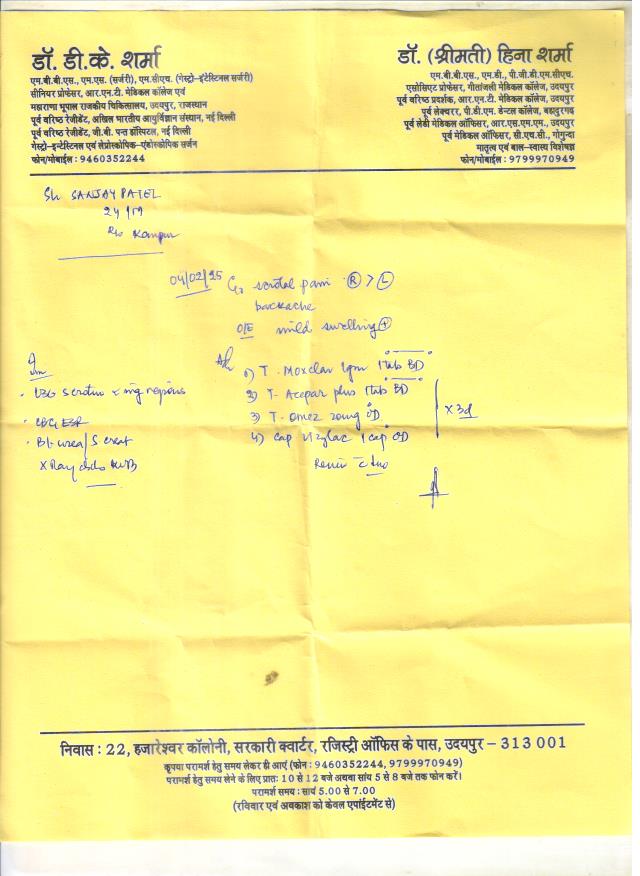 डॉ. डी.के. शर्मा
एम.बी.बी.एस., एम.एस. (सर्जरी), एम.सीएच. (गेस्ट्रो-इंटेस्टिनल सर्जरी)
सीनियर प्रोफेसर, आर.एन.टी. मेडिकल कॉलेज एवं
महाराणा भूपाल राजकीय चिकित्सालय, उदयपुर, राजस्थान
पूर्व वरिष्ठ रेजीडेंट, अखिल भारतीय आयुर्विज्ञान संस्थान, नई दिल्ली
पूर्व वरिष्ठ रेजीडेंट, जी.बी. पन्त हॉस्पिटल, नई दिल्ली
गेस्ट्रो-इन्टेस्टिनल एवं लेप्रोस्कोपिक-एंडोस्कोपिक सर्जन
फोन/मोबाईल : 9460352244
डॉ. (श्रीमती) हिना शर्मा
एम.बी.बी.एस., एम.डी., पी.जी.डी.एम.सीएच.
एसोसिएट प्रोफेसर, गीतांजली मेडिकल कॉलेज, उदयपुर
पूर्व वरिष्ठ प्रदर्शक, आर.एन.टी. मेडिकल कॉलेज, उदयपुर
पूर्व लेक्चरर, पी.डी.एम. डेन्टल कॉलेज, बहादुरगढ़
पूर्व लेडी मेडिकल ऑफिसर, आर.एस.एम.एम., उदयपुर
पूर्व मेडिकल ऑफिसर, सी.एच.सी., गोगुन्दा
मातृत्व एवं बाल-स्वास्थ्य विशेषज्ञ
फोन/मोबाईल : 9799970949
Sh SANJAY PATEL
24/M
R/o Kanpur
04/02/25 scrotal pain R > L
backache
O/E mild swelling +
USG scrotum ing regions
CBC, ESR
Bl. urea/S creat
X Ray KUB
1) T. Moxclav 1gm 1tab BD
2) T. Acepar plus 1tab BD
3) T. Omez 20mg OD
4) Cap Vizylac 1 cap OD
X 3d
Review
निवास : 22, हजारेश्वर कॉलोनी, सरकारी क्वार्टर, रजिस्ट्री ऑफिस के पास, उदयपुर – 313 001
कृपया परामर्श हेतु समय लेकर ही आएं (फोन : 9460352244, 9799970949)
परामर्श हेतु समय लेने के लिए प्रातः 10 से 12 बजे अथवा सांय 5 से 8 बजे तक फोन करें।
परामर्श समय : सायं 5.00 से 7.00
(रविवार एवं अवकाश को केवल एपांईटमेंट से)